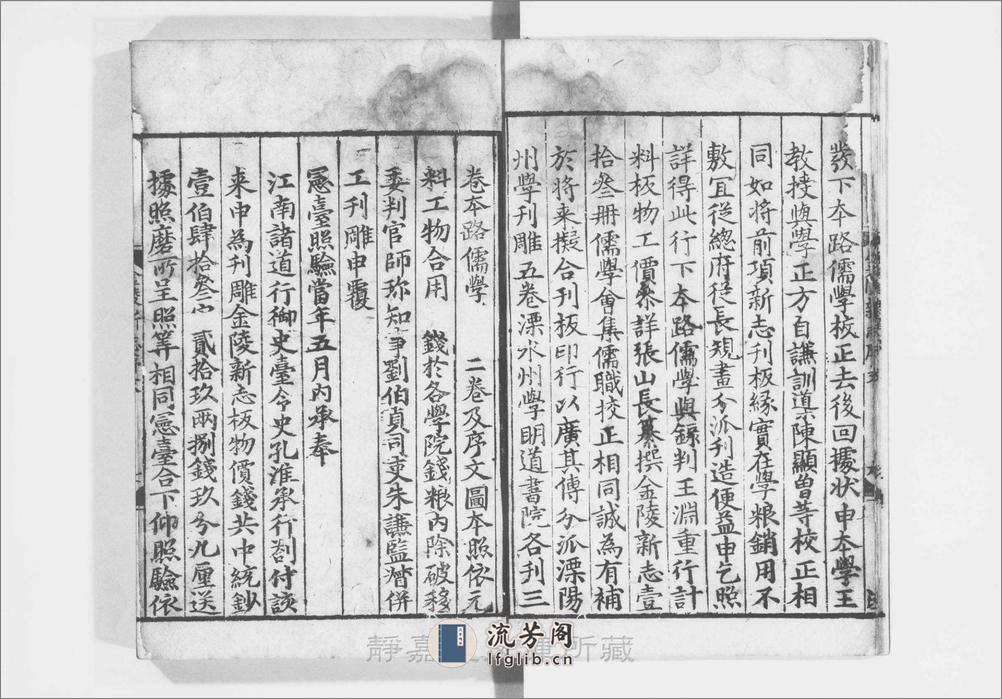 發下本路儒學校正去後回據狀申本學王
教授與學正方自謙訓導陳顯曾等校正相
同如將前項新志刊板緣實在學粮銷用不
敷宜從總府從長規畫分派刊造便益申乞照
詳得此行下本路儒學與録判王淵重行計
料板物工價叅詳張山長纂撰金陵新志壹
拾叄冊儒學會集儒職挍正相同誠為有補
於將来擬合刊板印行以廣其傳分派溧陽
州學刊雕五卷溧水州學明道書院各刊三
卷本路儒學 二卷及序文圖本照依元
料工物合用 錢於各學院錢粮内除破移
委判官師珎知事劉伯貞司吏朱謙監督併
工刊雕申覆
憲臺照驗當年五月内承奉
江南諸道行御史臺令史孔淮承行劄付該
来申為刊雕金陵新志板物價錢共中統鈔
壹伯肆拾叄定貳拾玖兩捌錢玖分九厘送
據照磨所呈照筭相同憲臺合下仰照驗依
流芳阁
lfglib.cn
靜嘉 所藏